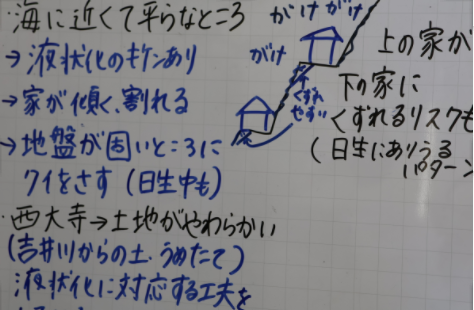 海に近くて平らなところ
→液状化のキケンあり
→家が傾く、割れる
→地盤が固いところに
クイをさす（日生中も）
西大寺→土地がやわらかい
（吉井川からの土、うめたて）
液状化に対応する工夫を
がけ がけ
がけ
くずれ
やすい
上の家が
下の家に
くずれるリスクも
（日生にありうる
パターン